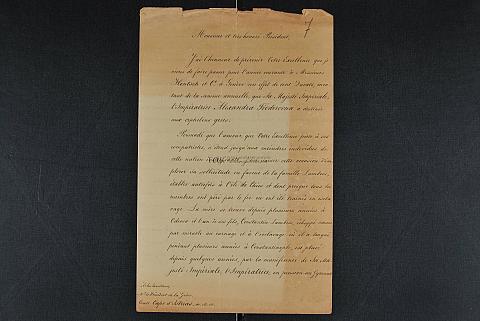 7
Monsieur et très honoré Président,
J'ai l'honneur de prévenir Votre Excellence que je
viens de faire passer pour l'année courante à Messieurs
Hentsch et Cie à Genève un effet de cent Ducats, mon-
tant de la somme annuelle, que Sa Majesté Impériale,
l'Impératrice Alexandra Féodorovna a destinée
aux orphelins grecs.
Persuadé que l'amour que Votre Excellence porte à ses
compatriotes, s'étend jusqu'aux moindres individus de
cette nation
plorer sa sollicitude en faveur de la famille Lambros,
établie autrefois à l'île de et dont presque tous les
membres ont péri par le fer ou ont été traînés en escla-
vage. La mère se trouve depuis plusieurs années à
Odessa et l'un de ses fils, Constantin Lambros, échappé comme
par miracle au carnage et à l'esclavage où il a langui
pendant plusieurs années à Constantinople, est placé
depuis quelques années, par la munificence de Sa Ma-
jesté Impériale, l'Impératrice, en pension au Gymnase
À Son Excellence
le Président de la Grèce,
Comte Capo d'Istrias